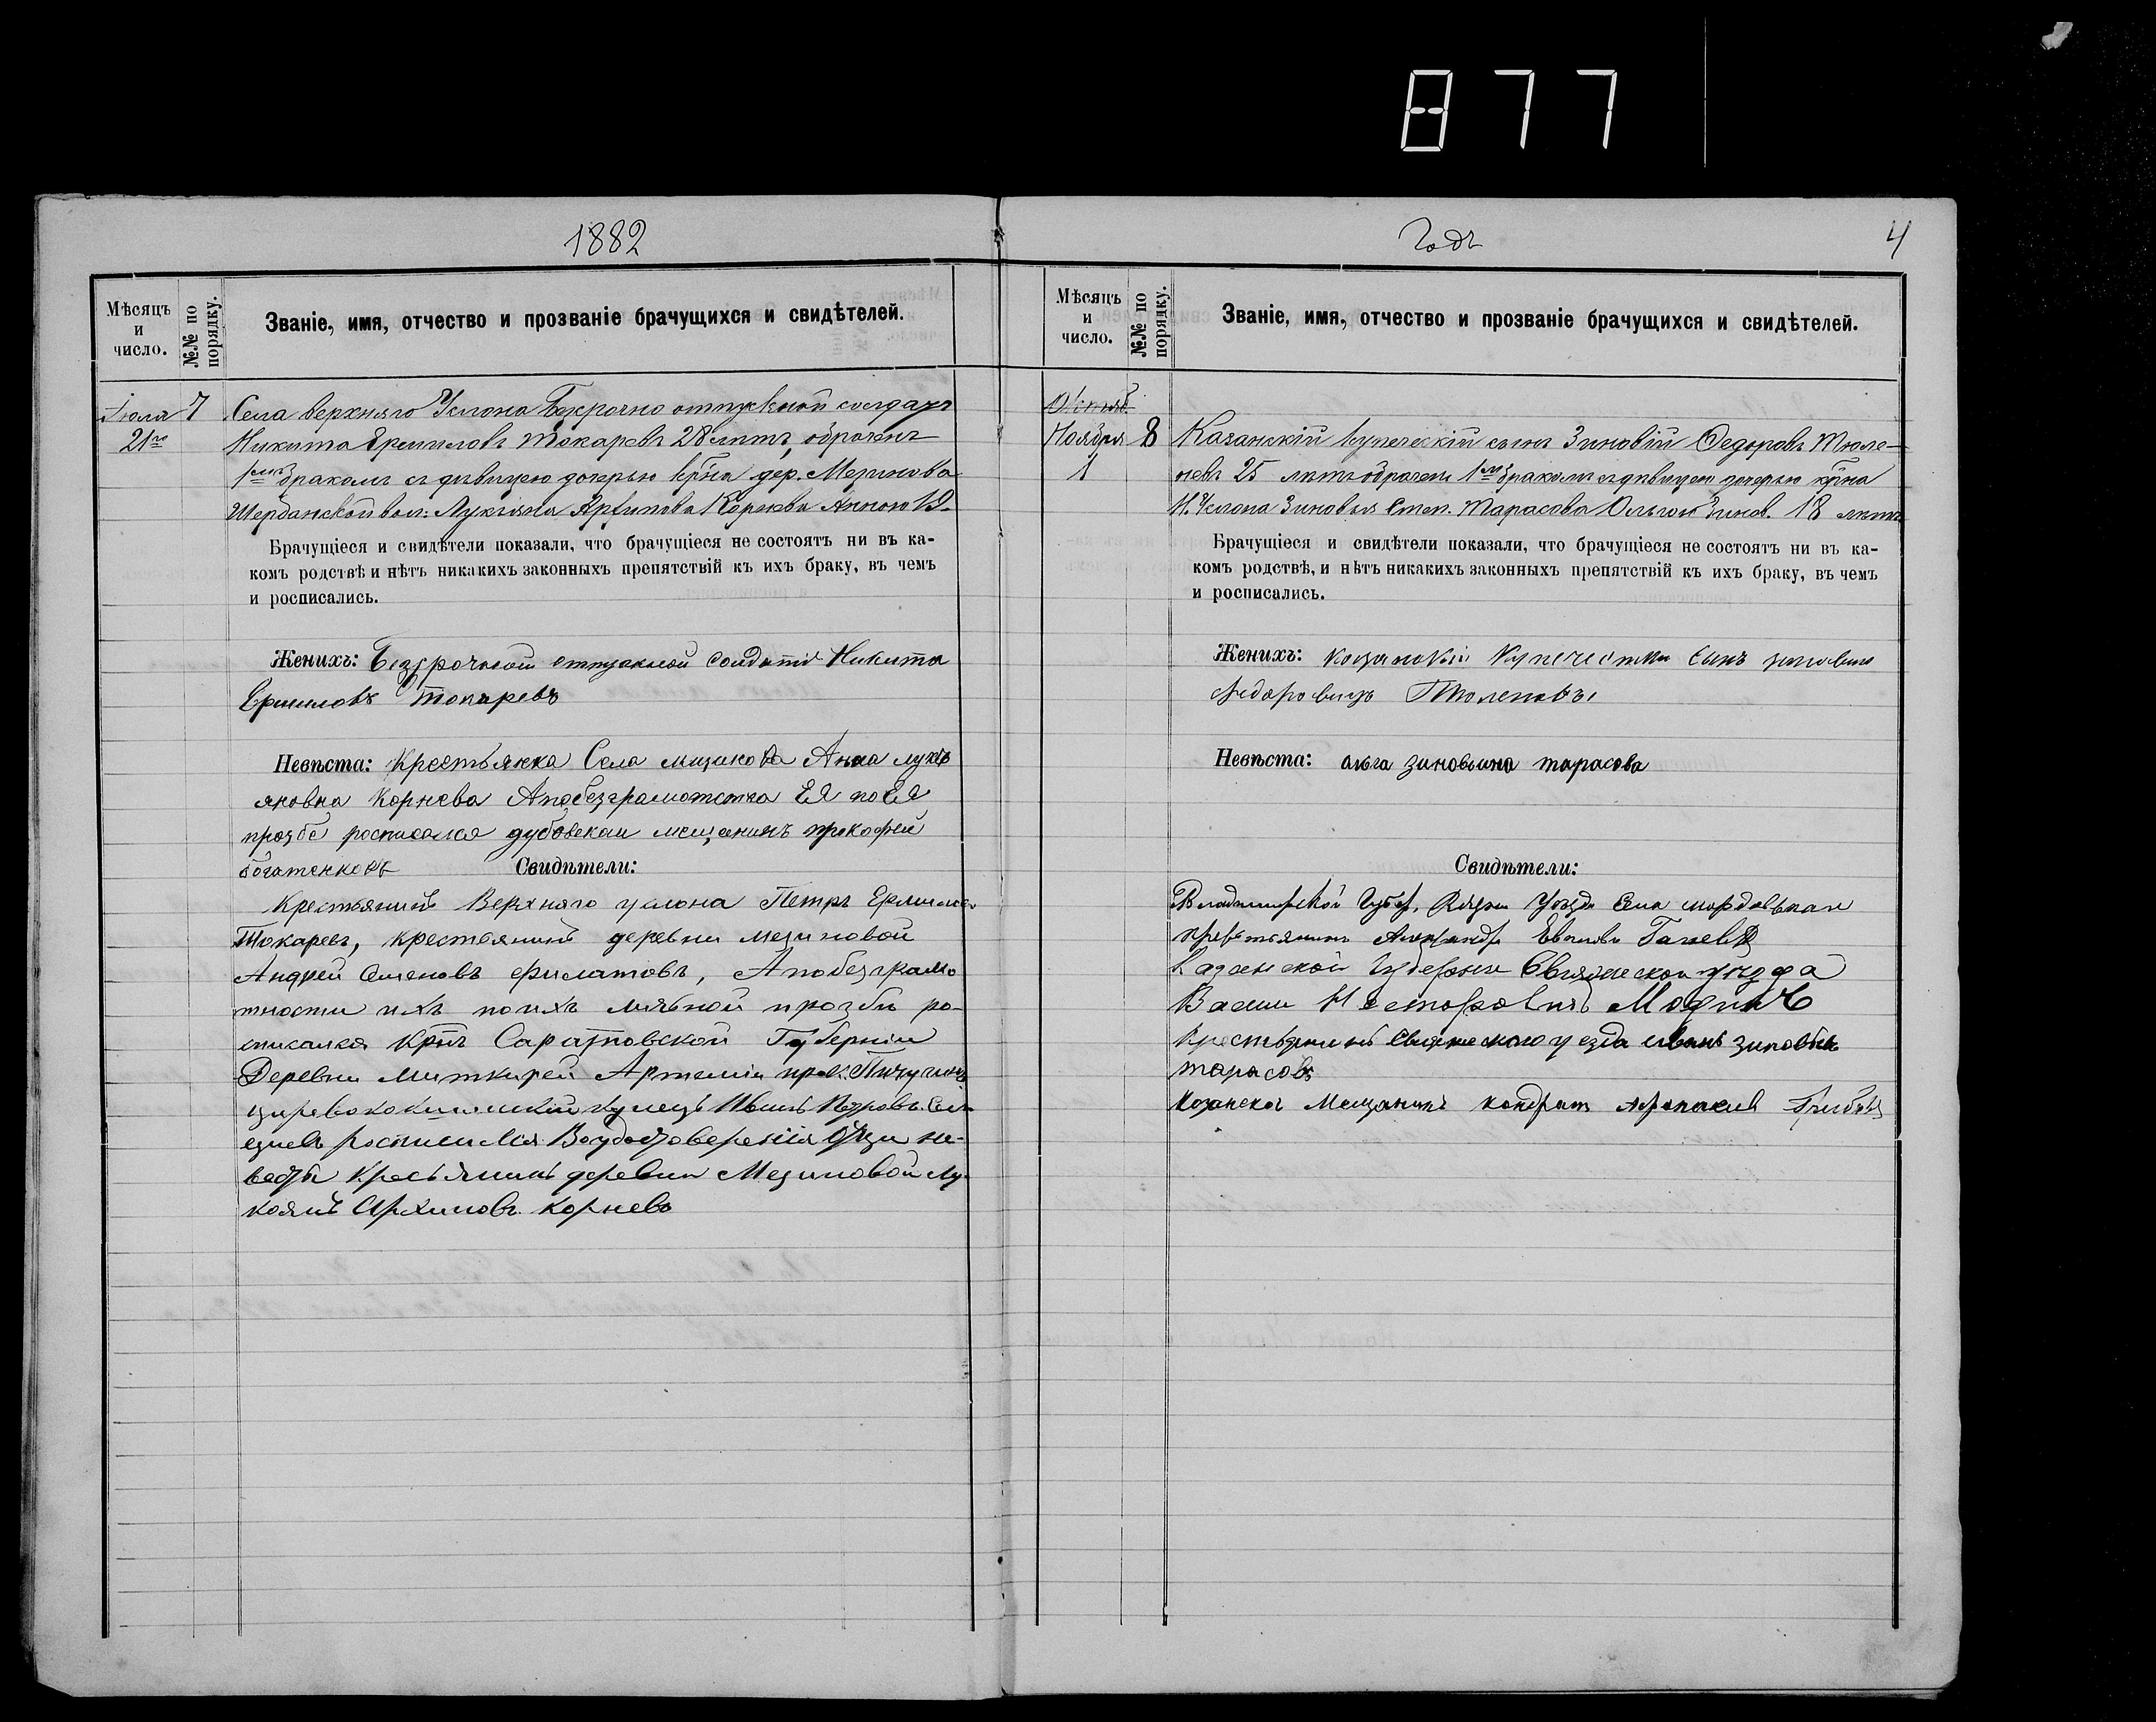 877
1882
Годъ
4
Мѣсяцъ и число.
№№ по порядку.
Званіе, имя, отчество и прозваніе брачущихся и свидѣтелей.
Іюля 21го
7
Села верхняго Услона Безсрочно отпускной солдатъ
Никита Ермиловъ Токаревъ 28 лѣтъ, обрачен
1мъ бракомъ съ дѣвицею дочерью кр̃на дер. Мезинова
Шерданской вол: Лукіяна Архипова Корнева Анною 19.
Брачущіеся и свидѣтели показали, что брачущіеся не состоятъ ни въ ка-
комъ родствѣ и нѣтъ никакихъ законныхъ препятствій къ ихъ браку, въ чемъ
и росписались.
Женихъ: Безсрочной отпускной солдатъ Никита
Ермиловъ Токаревъ
Невѣста: Крестьянка Села мизинова Анна лукь
яновна Корнева Апобезграмотства ЕЯ поЕЯ
прозбѣ росписался дубовскаи мещанинъ прокофеи
богатенковъ
Свидѣтели:
Крестьянинъ Верхняго услона Петръ Ермилов
Токаревъ, крестьянинъ деревни мезиновой
Андрей Семеновъ филатовъ, Апобезграмо
тности ихъ поихъ личной прозбы ро-
списался Кр̃нъ Саратовской Губерніи
Деревни Миткирей Артемій прок. Пичугинъ
царевококшаискій купецъ Иванъ Петровъ
росписился Воудостоверенія Отца не-
весты Кресьянинъ деревни Мезиновой Лу-
коянъ Архиповъ Корневъ
Мѣсяцъ и число.
№№ по порядку.
Званіе, имя, отчество и прозваніе брачущихся и свидѣтелей.
Октяб.
Ноября 1
8
Казанскій купеческій сынъ Зиновій Федоровъ Тюле-
невъ 25 лѣтъ обрачен 1мъ бракомъ съ дѣвицею дочерью кр̃на
Н. Услона Зиновья Степ. Тарасова Ольгою Зинов. 18 лѣтъ
Брачущіеся и свидѣтели показали, что брачущіеся не состоятъ ни въ ка-
комъ родствѣ, и нѣтъ никакихъ законныхъ препятствій къ ихъ браку, въ чемъ
и росписались.
Женихъ: Козанскій Купечески Сынъ зиновии
Федоровичъ Тюленовъ
Невѣста: олга зиновьина тарасова
Свидѣтели:
Владимирской Губер. Уезда Села мордовская
крестьянинъ Александр
Казанской Губернии Свияжскои уезда
Васили Несторовичъ
Крестьянинъ Свияжскаго уезда иванъ зиновьев
тарасовъ
Козанскои Мещанинъ кондрат